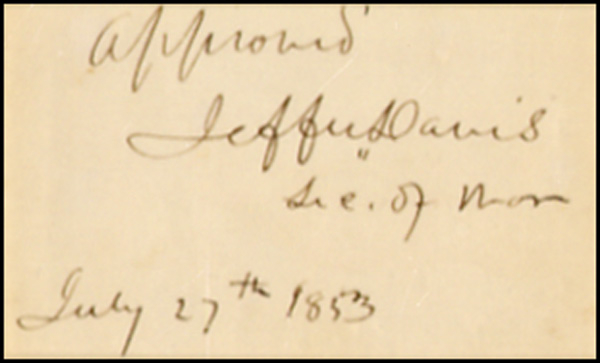 Approved
Jeffn Davis
Sec. of War
July 27th 1853